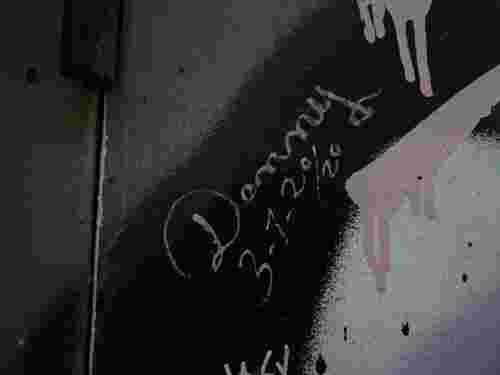 Danney
3.7.20/20